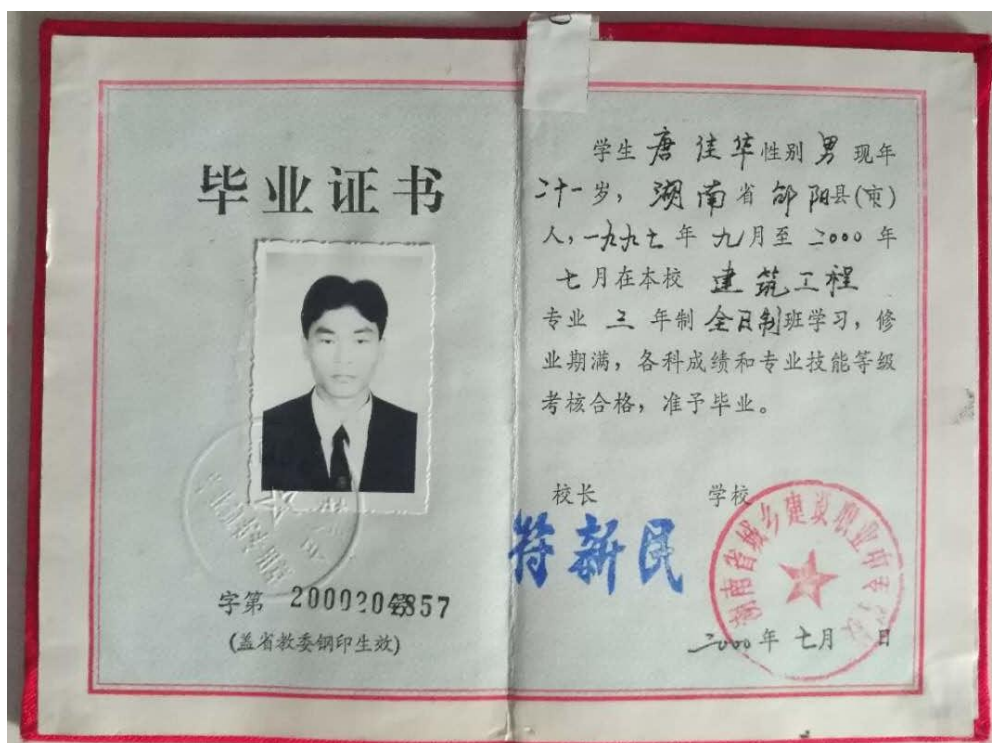 毕业证书
字第 200020 号857
(盖省教委钢印生效)
学生 唐佳华 性别 男 现年
二十一岁，湖南省 邵阳县(市)
人，一九九七年 九月至 二000 年
七月在本校 建筑工程
专业 三 年制 全日制班学习，修
业期满，各科成绩和专业技能等级
考核合格，准予毕业。
校长 学校
符新民
湖南省城乡建设职业中专学校
二000年 七月 日